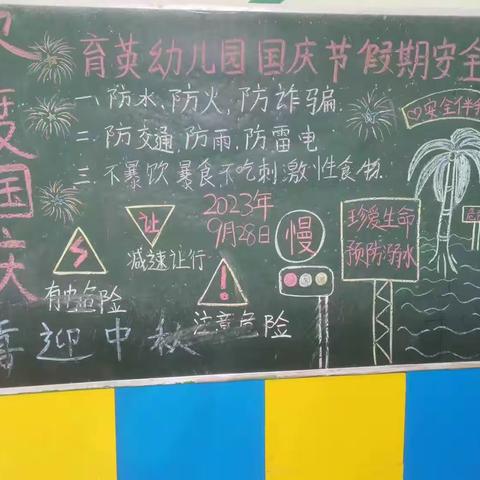 欢度国庆
育英幼儿园国庆节假期安全
一.防水、防火、防诈骗.
二.防交通,防雨,防雷电
三.不暴饮暴食不吃刺激性食物.
2023年
9月28日
让
减速让行
慢
珍爱生命
预防溺水
安全伴
有电危险
注意危险
喜迎中秋